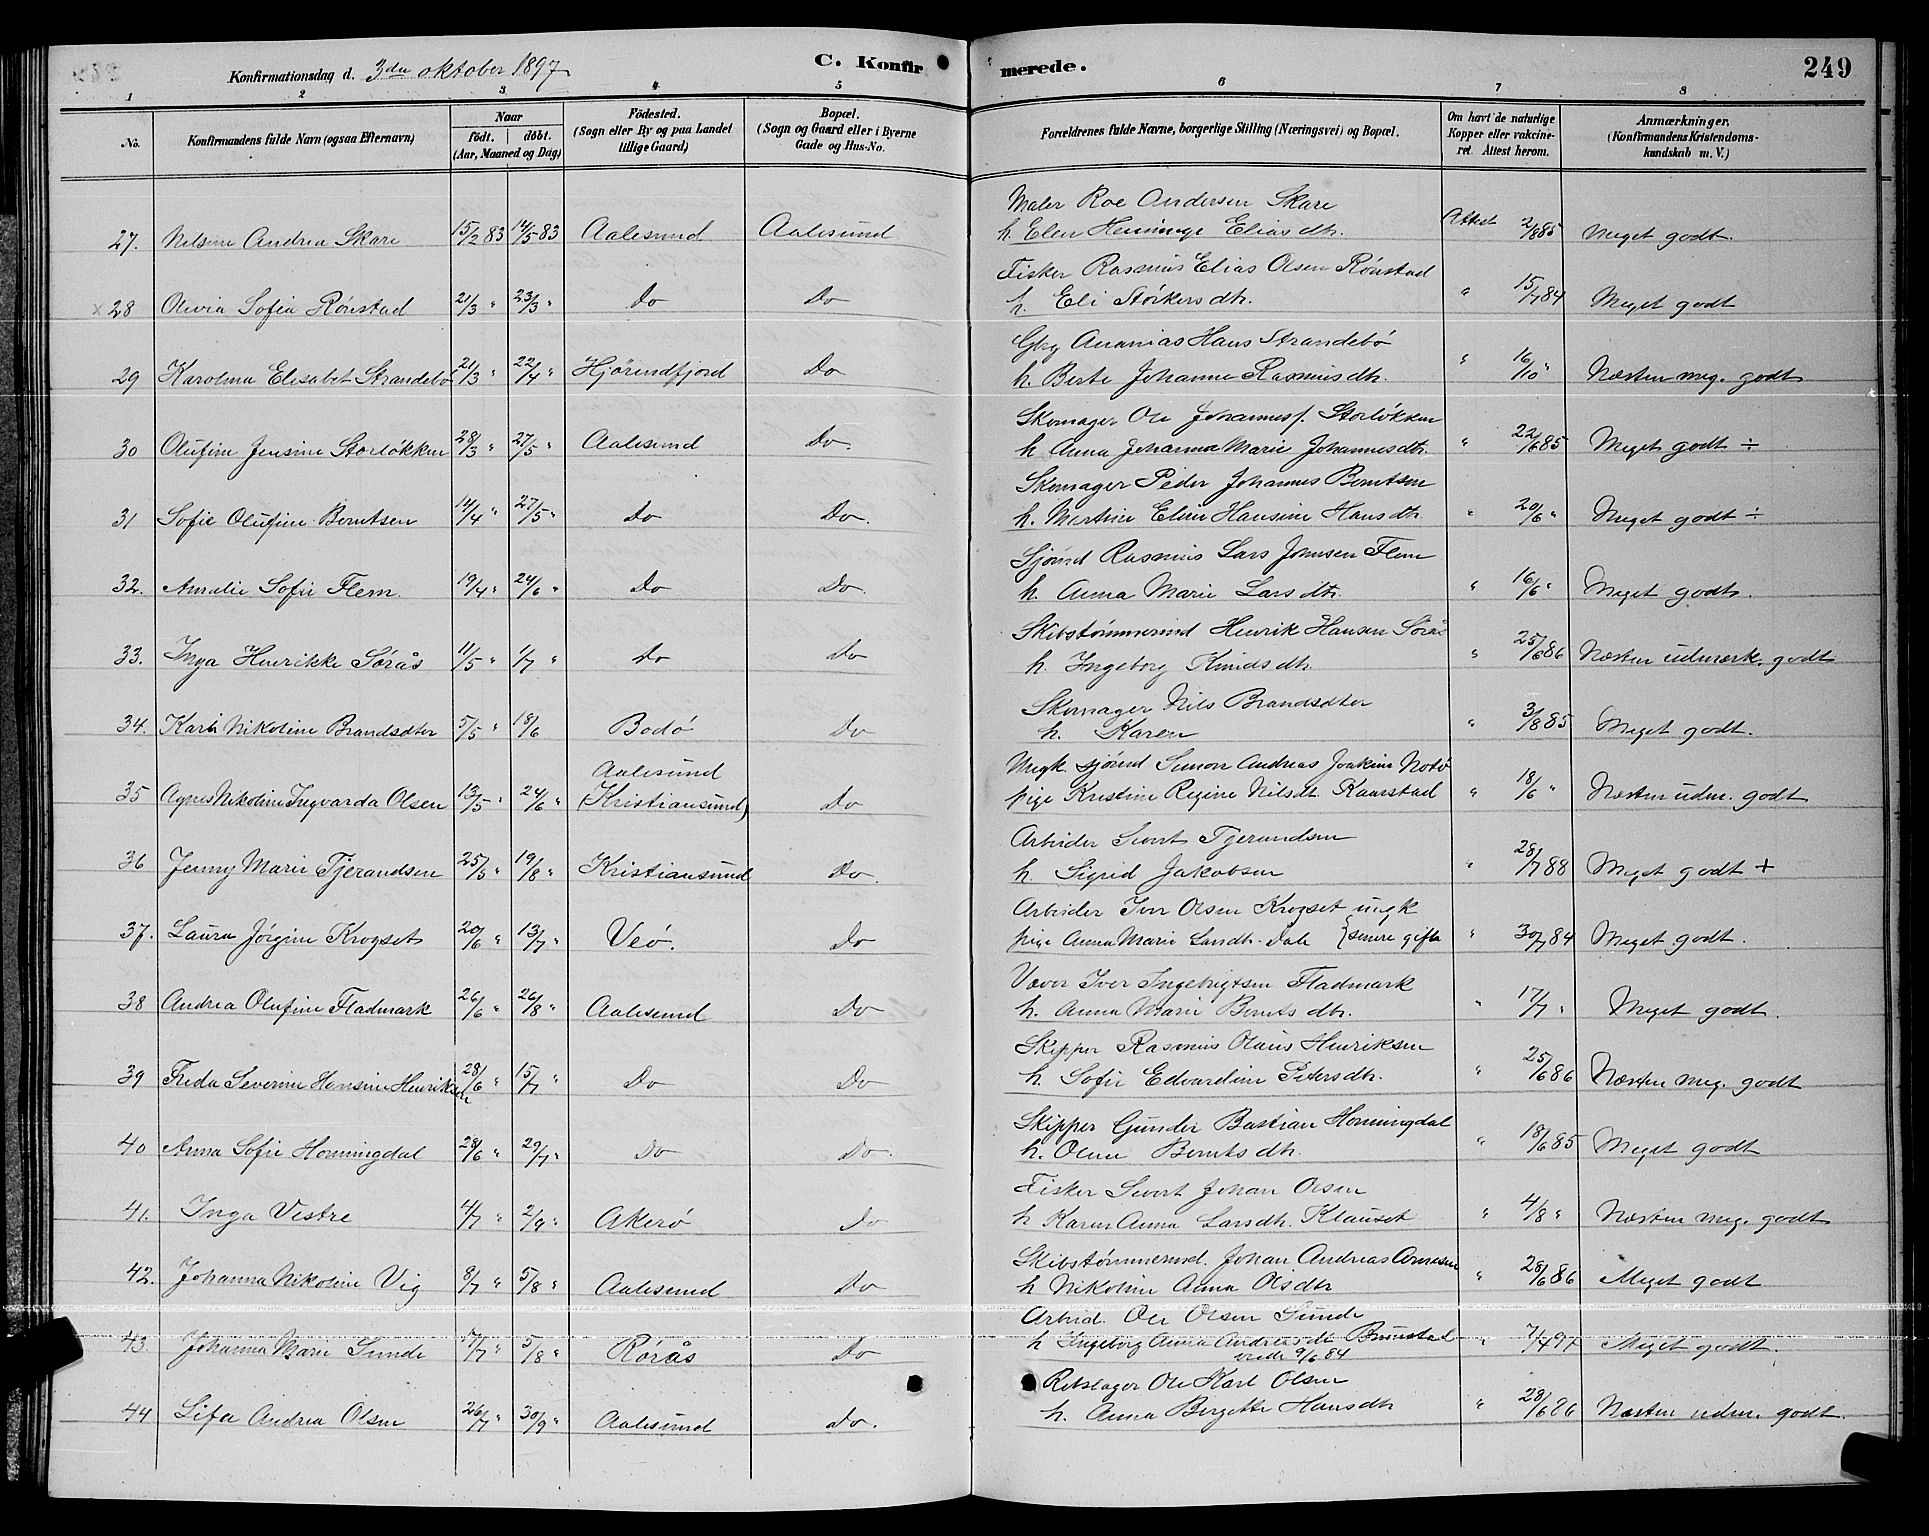 Konfirmationsdag d. 3die oktober 1897 C. Konfirmerede. 249
1 2 3 4 5 6 7 8
No. Konfirmandens fulde Navn (ogsaa Efternavn) Naar født. døbt. (Aar, Maaned og Dag) Fødested. (Sogn eller By og paa Landet tillige Gaard) Bopæl. (Sogn og Gaard eller i Byerne Gade og Hus-No. Forældrenes fulde Navne, borgerlige Stilling (Næringsvei) og Bopæl. Om havt de naturlige Kopper eller vaccineret. Attest herom. Anmærkninger. (Konfirmandens Kristendomskundskab m. V.)
Maler Roe Andersen Skare
27. Nilsine Andrea Skare 15/2 83 14/5 83 Aalesund Aalesund h. Elen Henninge Eliasdtr. Attest 2/8 85 Meget godt.
Fisker Rasmus Elias Olsen Rönstad
x 28 Olivia Sofia Rönstad 21/3 " 23/3 " Do Do h. Eli Störkersdtr. " 15/7 84 Meget godt
Gbrg Ananias Hans Strandebö
29 Karolina Elisabet Strandebö 21/3 " 22/4 " Hjörundfjord Do h. Berte Johanne Rasmusdtr. " 16/10 " Næsten meg. godt
Skomager Ole Johannesf. Storlökken
30 Olufine Jensine Storlökken 28/3 " 27/5 " Aalesund Do. h Anna Johanna Marie Johannesdtr. " 22/6 85 Meget godt ÷
Skomager Peder Johannes Berntsen
31 Sofie Olufine Berntsen 14/4 " 27/5 " Do Do. h. Martine Eline Hansine Hansdtr " 20/6 " Meget godt ÷
Sjömd Rasmus Lars Johnsen Flem
32. Amalie Sofie Flem. 19/4 " 24/6 " Do Do. h. Anna Marie Larsdtr. " 16/6 " Meget godt.
Skibstömmermd Henrik Hansen Sörås
33. Inga Henrikke Sörås 11/5 " 1/7 " Do Do h. Ingeborg Knudsdtr. " 25/6 86 Næsten udmærk. godt
Skomager Nils Brandsdter
34. Kari Nikoline Brandsdter 5/5 " 18/6 Bodö Do h. Karen " 3/8 85 Meget godt.
Aalesund Ungk. sjömd Simon Andreas Joakim
35 Agnes Nikoline Ingvarda Olsen 13/5 " 24/6 " (Kristiansund) Do pige Kristine Regine Nilsdt. Kaarstad " 18/6 " Næsten udm. godt
Arbeider Sivert Tjerandsen
36 Jenny Marie Tjerandsen 25/5 " 19/8 " Kristiansund Do. h. Sigrid Jakobsen " 28/7 88 Meget godt +
Arbeider Iver Olsen Krogset ungk
37. Laura Jörgine Krogset 20/6 " 13/7 " Veö. Do pige Anna Marie Larsdtr. Dale {senere gifte " 30/7 84 Meget godt.
Væver Iver Ingebrigtsen Fladmark
38 Andrea Olufine Fladmark 26/6 " 26/8 " Aalesund Do h. Anna Marie Berntsdtr. " 17/7 " Meget godt.
Skipper Rasmus Olaus Henriksen
39 Freda Severine Hansine Henriksen 28/6 " 15/7 " Do Do h. Sofie Edvardine Petersdtr. " 25/6 86 Næsten meg. godt
Skipper Gunder Bastian Horningdal
40 Anna Sofie Horningdal 28/6 " 29/7 " Do Do. h. Oline Berntsdtr. " 18/6 85 Meget godt
Fisker Sivert Johan Olsen
41. Inga Vestre 4/7 " 2/9 " Akerö Do h Karen Anna Larsdtr. Klauset " 4/8 " Næsten meg. godt
Skibstömmermd. Johan Andreas Arnesen
42. Johanna Nikoline Vig 8/7 " 5/8 " Aalesund Do h Nikoline Anna Olsdtr " 28/6 86 Meget godt
Arbeid. Ole Olsen Sunde
43. Johanna Marie Sunde 5/8 " Rörås Do h Ingeborg Anna Andreasdtr Brunstad " Meget godt.
9/6 84
Rebslager Ole Karl Olsen
44 Sifa Andrea Olsen 26/7 " 30/9 " Aalesund Do. h. Anna Bergitte Hansdtr " Næsten udm. godt.